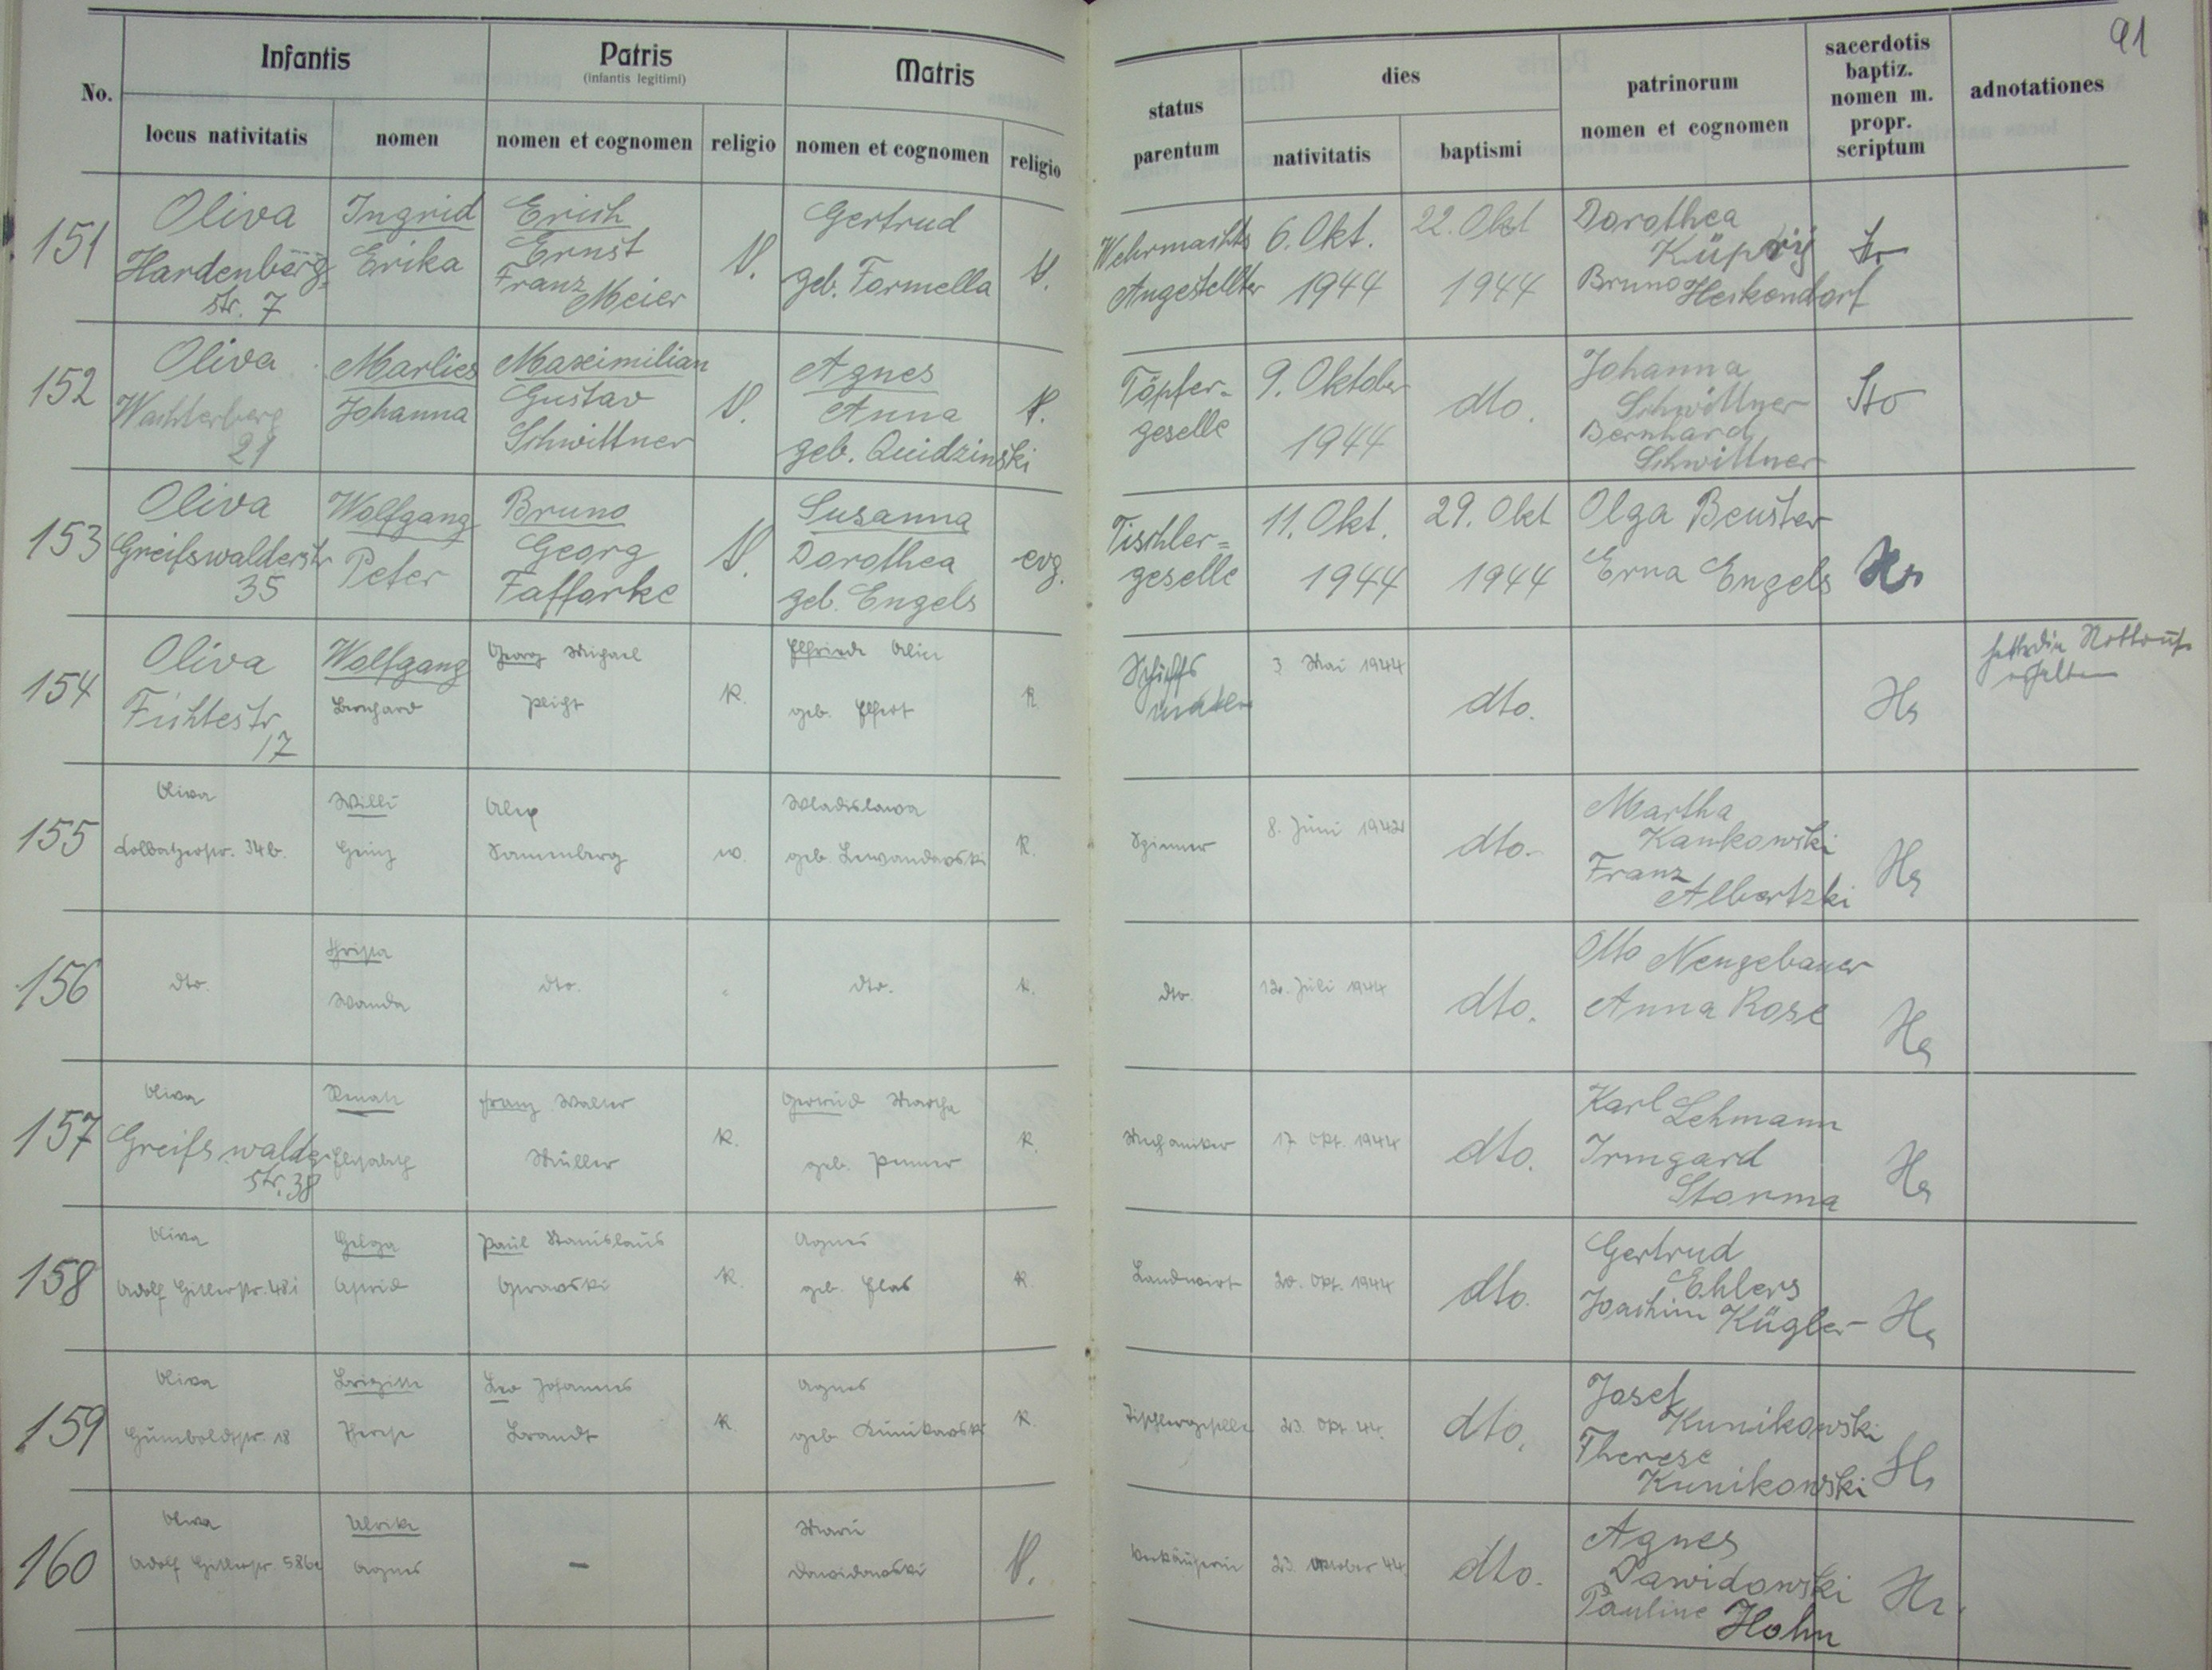 91
No.
Infantis
Patris
(infantis legitimi)
Matris
locus nativitatis
nomen
nomen et cognomen
religio
nomen et cognomen
religio
status
parentum
dies
nativitatis
baptismi
patrinorum
nomen et cognomen
sacerdotis
baptiz.
nomen m.
propr.
scriptum
adnotationes
151
Oliva
Hardenberg
str. 7
Ingrid
Erika
Erich
Ernst
Franz
Meier
Gertrud
geb. Formella
Wehrmachts
Angestellter
6. Okt.
1944
22. Okt
1944
Dorothea
Bruno Herkendorf
152
Oliva
Wächterberg
21
Marlies
Johanna
Maximilian
Gustav
Schwittner
Agnes
Anna
geb. Quidzinski
Töpfer-
geselle
9. Oktober
1944
dto.
Johanna
Schwittner
Bernhard
Schwittner
Sto
153
Oliva
Greifswalderstr
35
Wolfgang
Peter
Bruno
Georg
Faffarke
Susanna
Dorothea
geb. Engels
evg.
Tischler=
geselle
11. Okt.
1944
29. Okt
1944
Olga Beuster
Erna Engels
154
Oliva
Fichtestr
17
Wolfgang
Bernhard
Georg Michael
Plicht
k.
Elfriede Alice
geb. Elfert
k.
Schiffs
3 Mai 1944
dto.
hatte die Nottaufe
erhalten
155
Oliva
Kolbatzerstr. 34b.
Willi
Heinz
Alex
Tannenberg
Wladislawa
geb. Lewandowski
k.
Spinner
8. Juni 1942
dto.
Martha
Kankowski
Franz
Albertzki
156
dto.
Christa
Wanda
dto.
"
dto.
k.
dto.
12. Juli 1944
dto.
Otto Neugebauer
Anna Rose
157
Oliva
Greifswalder
str. 38
Renate
Elisabeth
Franz Walter
Müller
k.
Gertrud Martha
geb. Penner
k.
Mechaniker
17. Okt. 1944
dto.
Karl Lehmann
Irmgard
Storma
158
Oliva
Adolf Hitlerstr. 481
Helga
Astrid
Paul Stanislaus
k.
Agnes
geb. Elas
k.
Landwirt
20. Okt. 1944
dto.
Gertrud
Ehlers
Joachim Kügler
159
Oliva
Humboldtstr. 18
Brigitte
Therese
Leo Johannes
Brandt
k.
Agnes
geb. Kunikowski
k.
Tischlergeselle
23. Okt. 44.
dto.
Josef
Kunikowski
Therese
Kunikowski
160
Oliva
Adolf Hitlerstr. 586c
Ulrike
Agnes
–
Marie
Dawidowski
Verkäuferin
23. Oktober 44.
dto.
Agnes
Dawidowski
Pauline Hohn